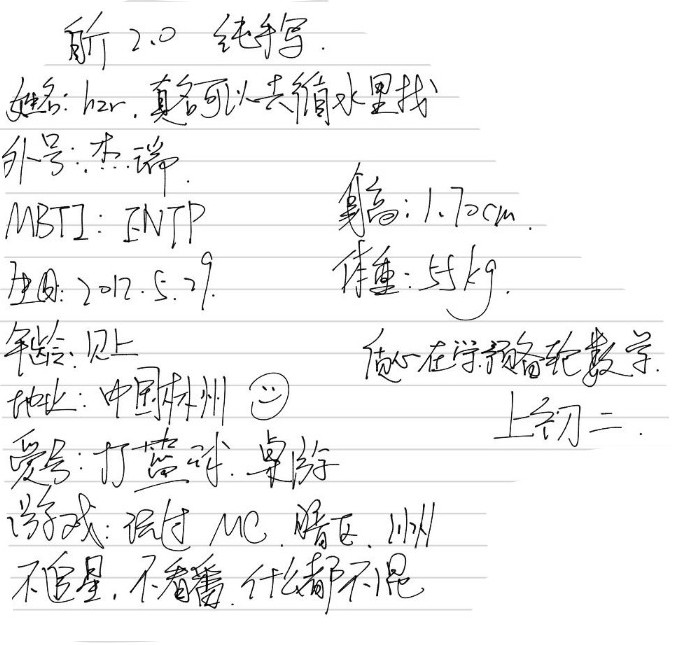 自介 2.0 纯手写.
姓名: hzr, 真名可以去缩水里找
外号: 杰瑞.
MBTI: INTP
身高: 1.70cm.
生日: 2012.5.29.
体重: 55kg.
年龄: 见上
信心在学预备轮数学.
地址: 中国林州
上初二.
爱号: 打蓝球. 桌游
游戏: 玩过 MC, 暗区,
不追星, 不看番, 什么都不混